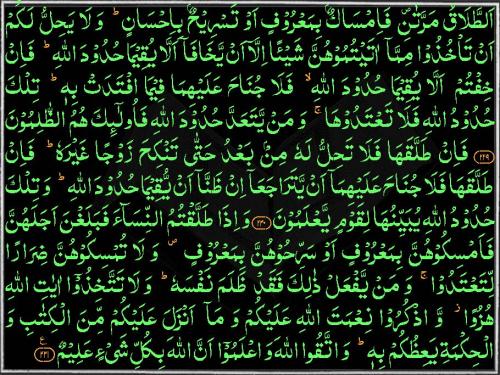 اَلطَّلَاقُ مَرَّتٰنِ ۪ فَاِمْسَاكٌۢ بِمَعْرُوْفٍ اَوْ تَسْرِيْحٌۢ بِاِحْسَانٍ ؕ وَ لَا يَحِلُّ لَكُمْ
اَنْ تَاْخُذُوْا مِمَّاۤ اٰتَيْتُمُوْهُنَّ شَيْـًٔا اِلَّاۤ اَنْ يَّخَافَاۤ اَلَّا يُقِيْمَا حُدُوْدَ اللّٰهِ ؕ فَاِنْ
خِفْتُمْ اَلَّا يُقِيْمَا حُدُوْدَ اللّٰهِ ۙ فَلَا جُنَاحَ عَلَيْهِمَا فِيْمَا افْتَدَتْ بِهٖ ؕ تِلْكَ
حُدُوْدُ اللّٰهِ فَلَا تَعْتَدُوْهَا ۚ وَ مَنْ يَّتَعَدَّ حُدُوْدَ اللّٰهِ فَاُولٰٓىِٕكَ هُمُ الظّٰلِمُوْنَ
﴿۲۲۹﴾ فَاِنْ طَلَّقَهَا فَلَا تَحِلُّ لَهٗ مِنْۢ بَعْدُ حَتّٰى تَنْكِحَ زَوْجًا غَيْرَهٗ ؕ فَاِنْ
طَلَّقَهَا فَلَا جُنَاحَ عَلَيْهِمَاۤ اَنْ يَّتَرَاجَعَاۤ اِنْ ظَنَّاۤ اَنْ يُّقِيْمَا حُدُوْدَ اللّٰهِ ؕ وَ تِلْكَ
حُدُوْدُ اللّٰهِ يُبَيِّنُهَا لِقَوْمٍ يَّعْلَمُوْنَ ﴿۲۳۰﴾ وَ اِذَا طَلَّقْتُمُ النِّسَآءَ فَبَلَغْنَ اَجَلَهُنَّ
فَاَمْسِكُوْهُنَّ بِمَعْرُوْفٍ اَوْ سَرِّحُوْهُنَّ بِمَعْرُوْفٍ ۪ وَ لَا تُمْسِكُوْهُنَّ ضِرَارًا
لِّتَعْتَدُوْا ۚ وَ مَنْ يَّفْعَلْ ذٰلِكَ فَقَدْ ظَلَمَ نَفْسَهٗ ؕ وَ لَا تَتَّخِذُوْۤا اٰيٰتِ اللّٰهِ
هُزُوًا ؗ وَّ اذْكُرُوْا نِعْمَتَ اللّٰهِ عَلَيْكُمْ وَ مَاۤ اَنْزَلَ عَلَيْكُمْ مِّنَ الْكِتٰبِ وَ
الْحِكْمَةِ يَعِظُكُمْ بِهٖ ؕ وَ اتَّقُوا اللّٰهَ وَ اعْلَمُوْۤا اَنَّ اللّٰهَ بِكُلِّ شَيْءٍ عَلِيْمٌ ﴿۲۳۱﴾ ع